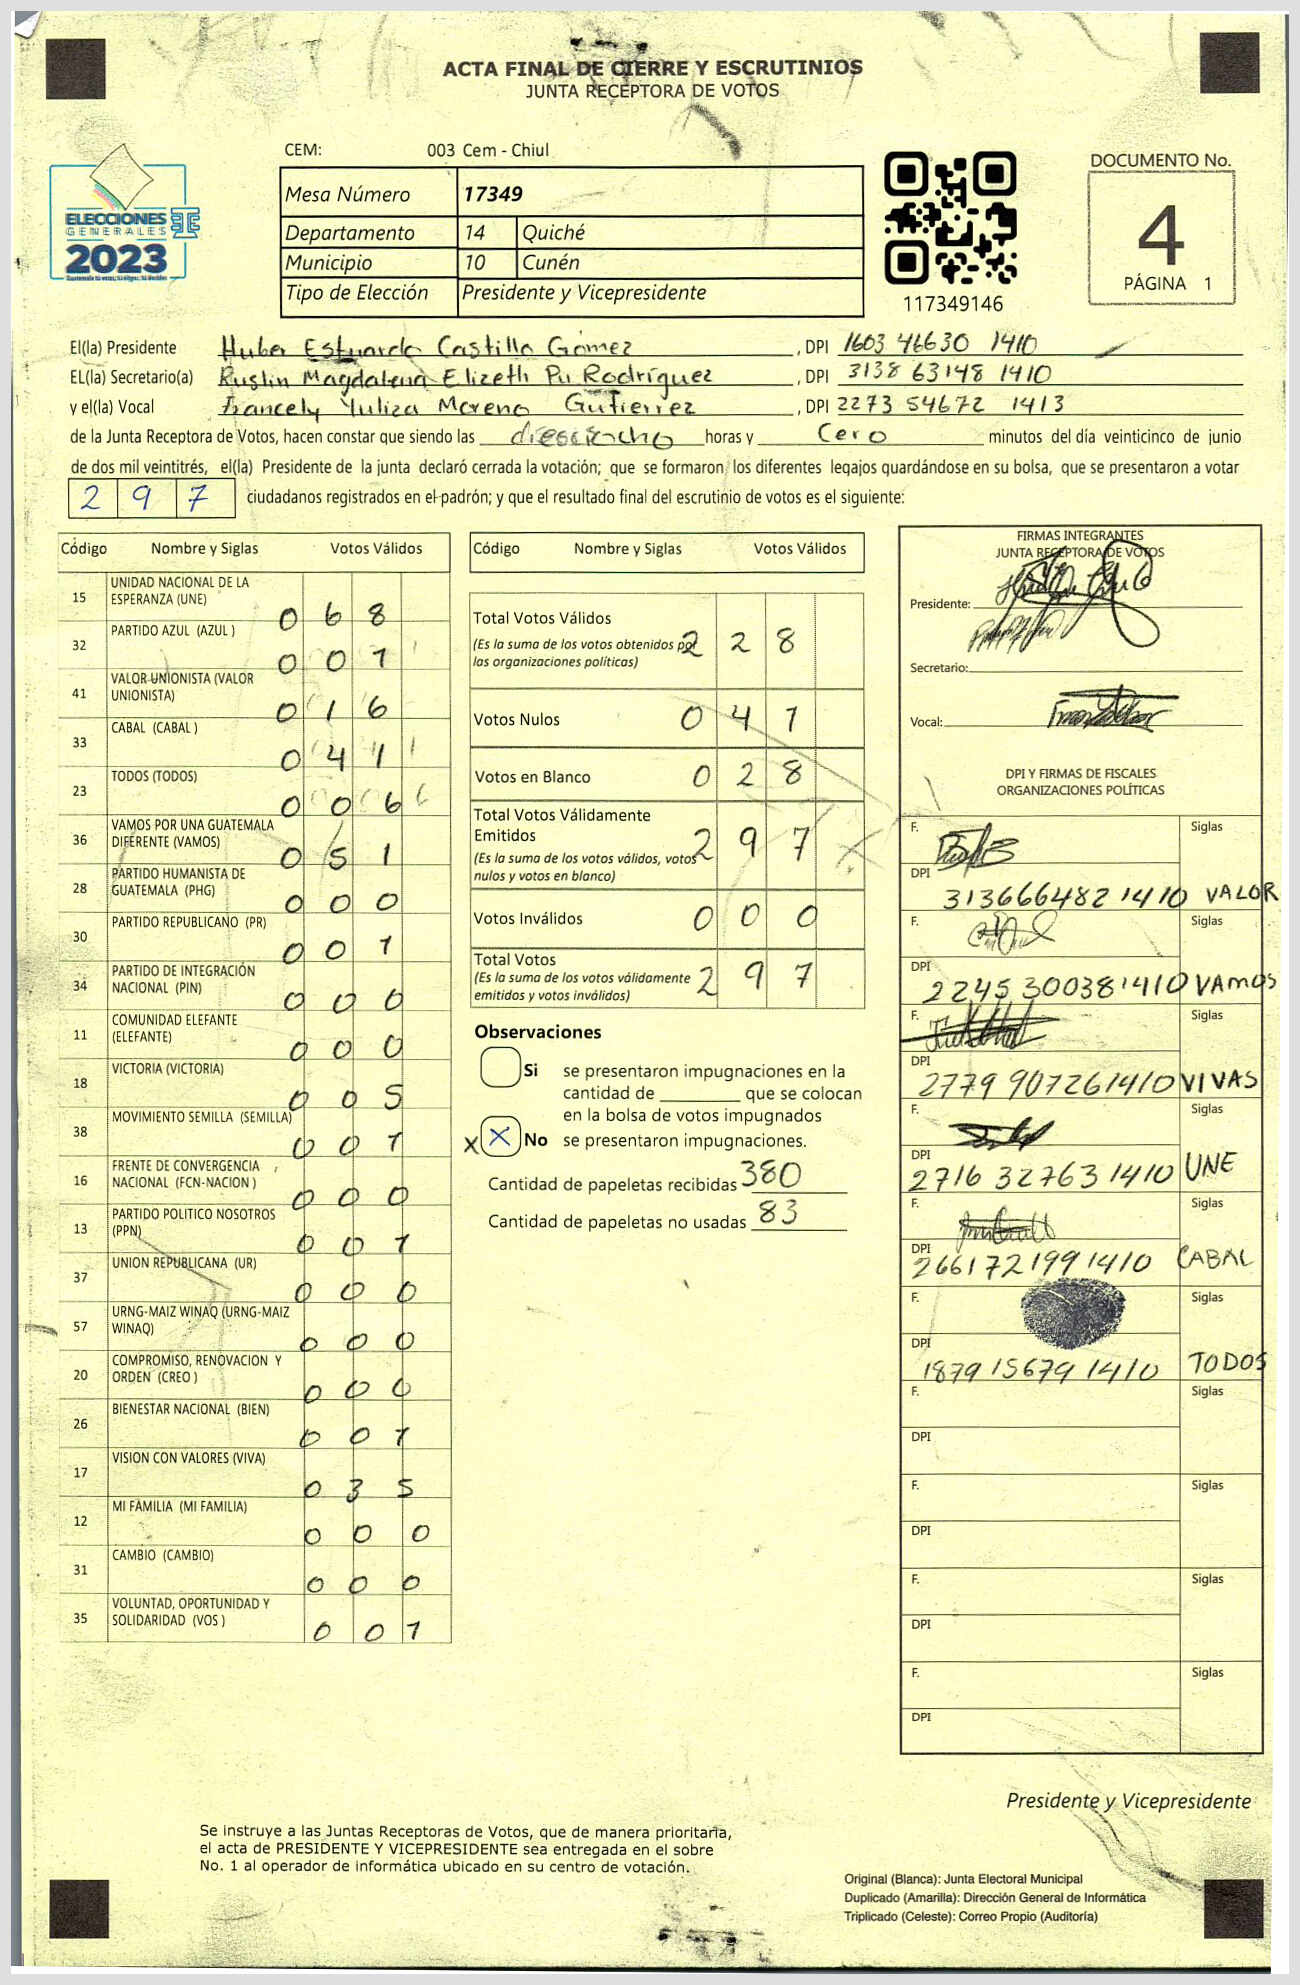 ACTA FINAL DE CIERRE Y ESCRUTINIOS
JUNTA RECEPTORA DE VOTOS
CEM: 003 Cem - Chiul
ELECCIONES
GENERALES
2023
Mesa Número 17349
Departamento 14 Quiché
Municipio 10 Cunén
Tipo de Elección Presidente y Vicepresidente
117349146
DOCUMENTO No.
4
PÁGINA 1
El(la) Presidente Huber Estuardo Castillo Gómez , DPI 1603 46630 1410
EL(la) Secretario(a) Ruslin Magdalena Elizeth Pu Rodríguez , DPI 3138 63148 1410
y el(la) Vocal Francely Yuliza Moreno Gutierrez , DPI 2273 54672 1413
de la Junta Receptora de Votos, hacen constar que siendo las dieciocho horas y Cero minutos del día veinticinco de junio
de dos mil veintitrés, el(la) Presidente de la junta declaró cerrada la votación; que se formaron los diferentes legajos guardándose en su bolsa, que se presentaron a votar
297 ciudadanos registrados en el padrón; y que el resultado final del escrutinio de votos es el siguiente:
Código Nombre y Siglas Votos Válidos
15 UNIDAD NACIONAL DE LA ESPERANZA (UNE) 068
32 PARTIDO AZUL (AZUL ) 001
41 VALOR UNIONISTA (VALOR UNIONISTA) 016
33 CABAL (CABAL ) 041
23 TODOS (TODOS) 006
36 VAMOS POR UNA GUATEMALA DIFERENTE (VAMOS) 051
28 PARTIDO HUMANISTA DE GUATEMALA (PHG) 000
30 PARTIDO REPUBLICANO (PR) 001
34 PARTIDO DE INTEGRACIÓN NACIONAL (PIN) 000
11 COMUNIDAD ELEFANTE (ELEFANTE) 000
18 VICTORIA (VICTORIA) 005
38 MOVIMIENTO SEMILLA (SEMILLA) 001
16 FRENTE DE CONVERGENCIA NACIONAL (FCN-NACION ) 000
13 PARTIDO POLITICO NOSOTROS (PPN) 001
37 UNION REPUBLICANA (UR) 000
57 URNG-MAIZ WINAQ (URNG-MAIZ WINAQ) 000
20 COMPROMISO, RENOVACION Y ORDEN (CREO ) 000
26 BIENESTAR NACIONAL (BIEN) 001
17 VISION CON VALORES (VIVA) 035
12 MI FAMILIA (MI FAMILIA) 000
31 CAMBIO (CAMBIO) 000
35 VOLUNTAD, OPORTUNIDAD Y SOLIDARIDAD (VOS ) 001
Código Nombre y Siglas Votos Válidos
Total Votos Válidos 228
(Es la suma de los votos obtenidos por
las organizaciones políticas)
Votos Nulos 041
Votos en Blanco 028
Total Votos Válidamente
Emitidos 297
(Es la suma de los votos válidos, votos
nulos y votos en blanco)
Votos Inválidos 000
Total Votos 297
(Es la suma de los votos válidamente
emitidos y votos inválidos)
Observaciones
Si se presentaron impugnaciones en la
cantidad de ________ que se colocan
en la bolsa de votos impugnados
X X No se presentaron impugnaciones.
Cantidad de papeletas recibidas 380
Cantidad de papeletas no usadas 83
FIRMAS INTEGRANTES
JUNTA RECEPTORA DE VOTOS
Presidente:
Secretario:
Vocal:
DPI Y FIRMAS DE FISCALES
ORGANIZACIONES POLÍTICAS
F. Siglas
DPI 313666482 1410 VALOR
F. Siglas
DPI 2245 30038 1410 VAMOS
F. Siglas
DPI 2779 90726 1410 VIVAS
F. Siglas
DPI 2716 32763 1410 UNE
F. Siglas
DPI 266172199 1410 CABAL
F. Siglas
DPI 1879 15679 1410 TODOS
F. Siglas
DPI
F. Siglas
DPI
F. Siglas
DPI
F. Siglas
DPI
Presidente y Vicepresidente
Se instruye a las Juntas Receptoras de Votos, que de manera prioritaria,
el acta de PRESIDENTE Y VICEPRESIDENTE sea entregada en el sobre
No. 1 al operador de informática ubicado en su centro de votación.
Original (Blanca): Junta Electoral Municipal
Duplicado (Amarilla): Dirección General de Informática
Triplicado (Celeste): Correo Propio (Auditoría)